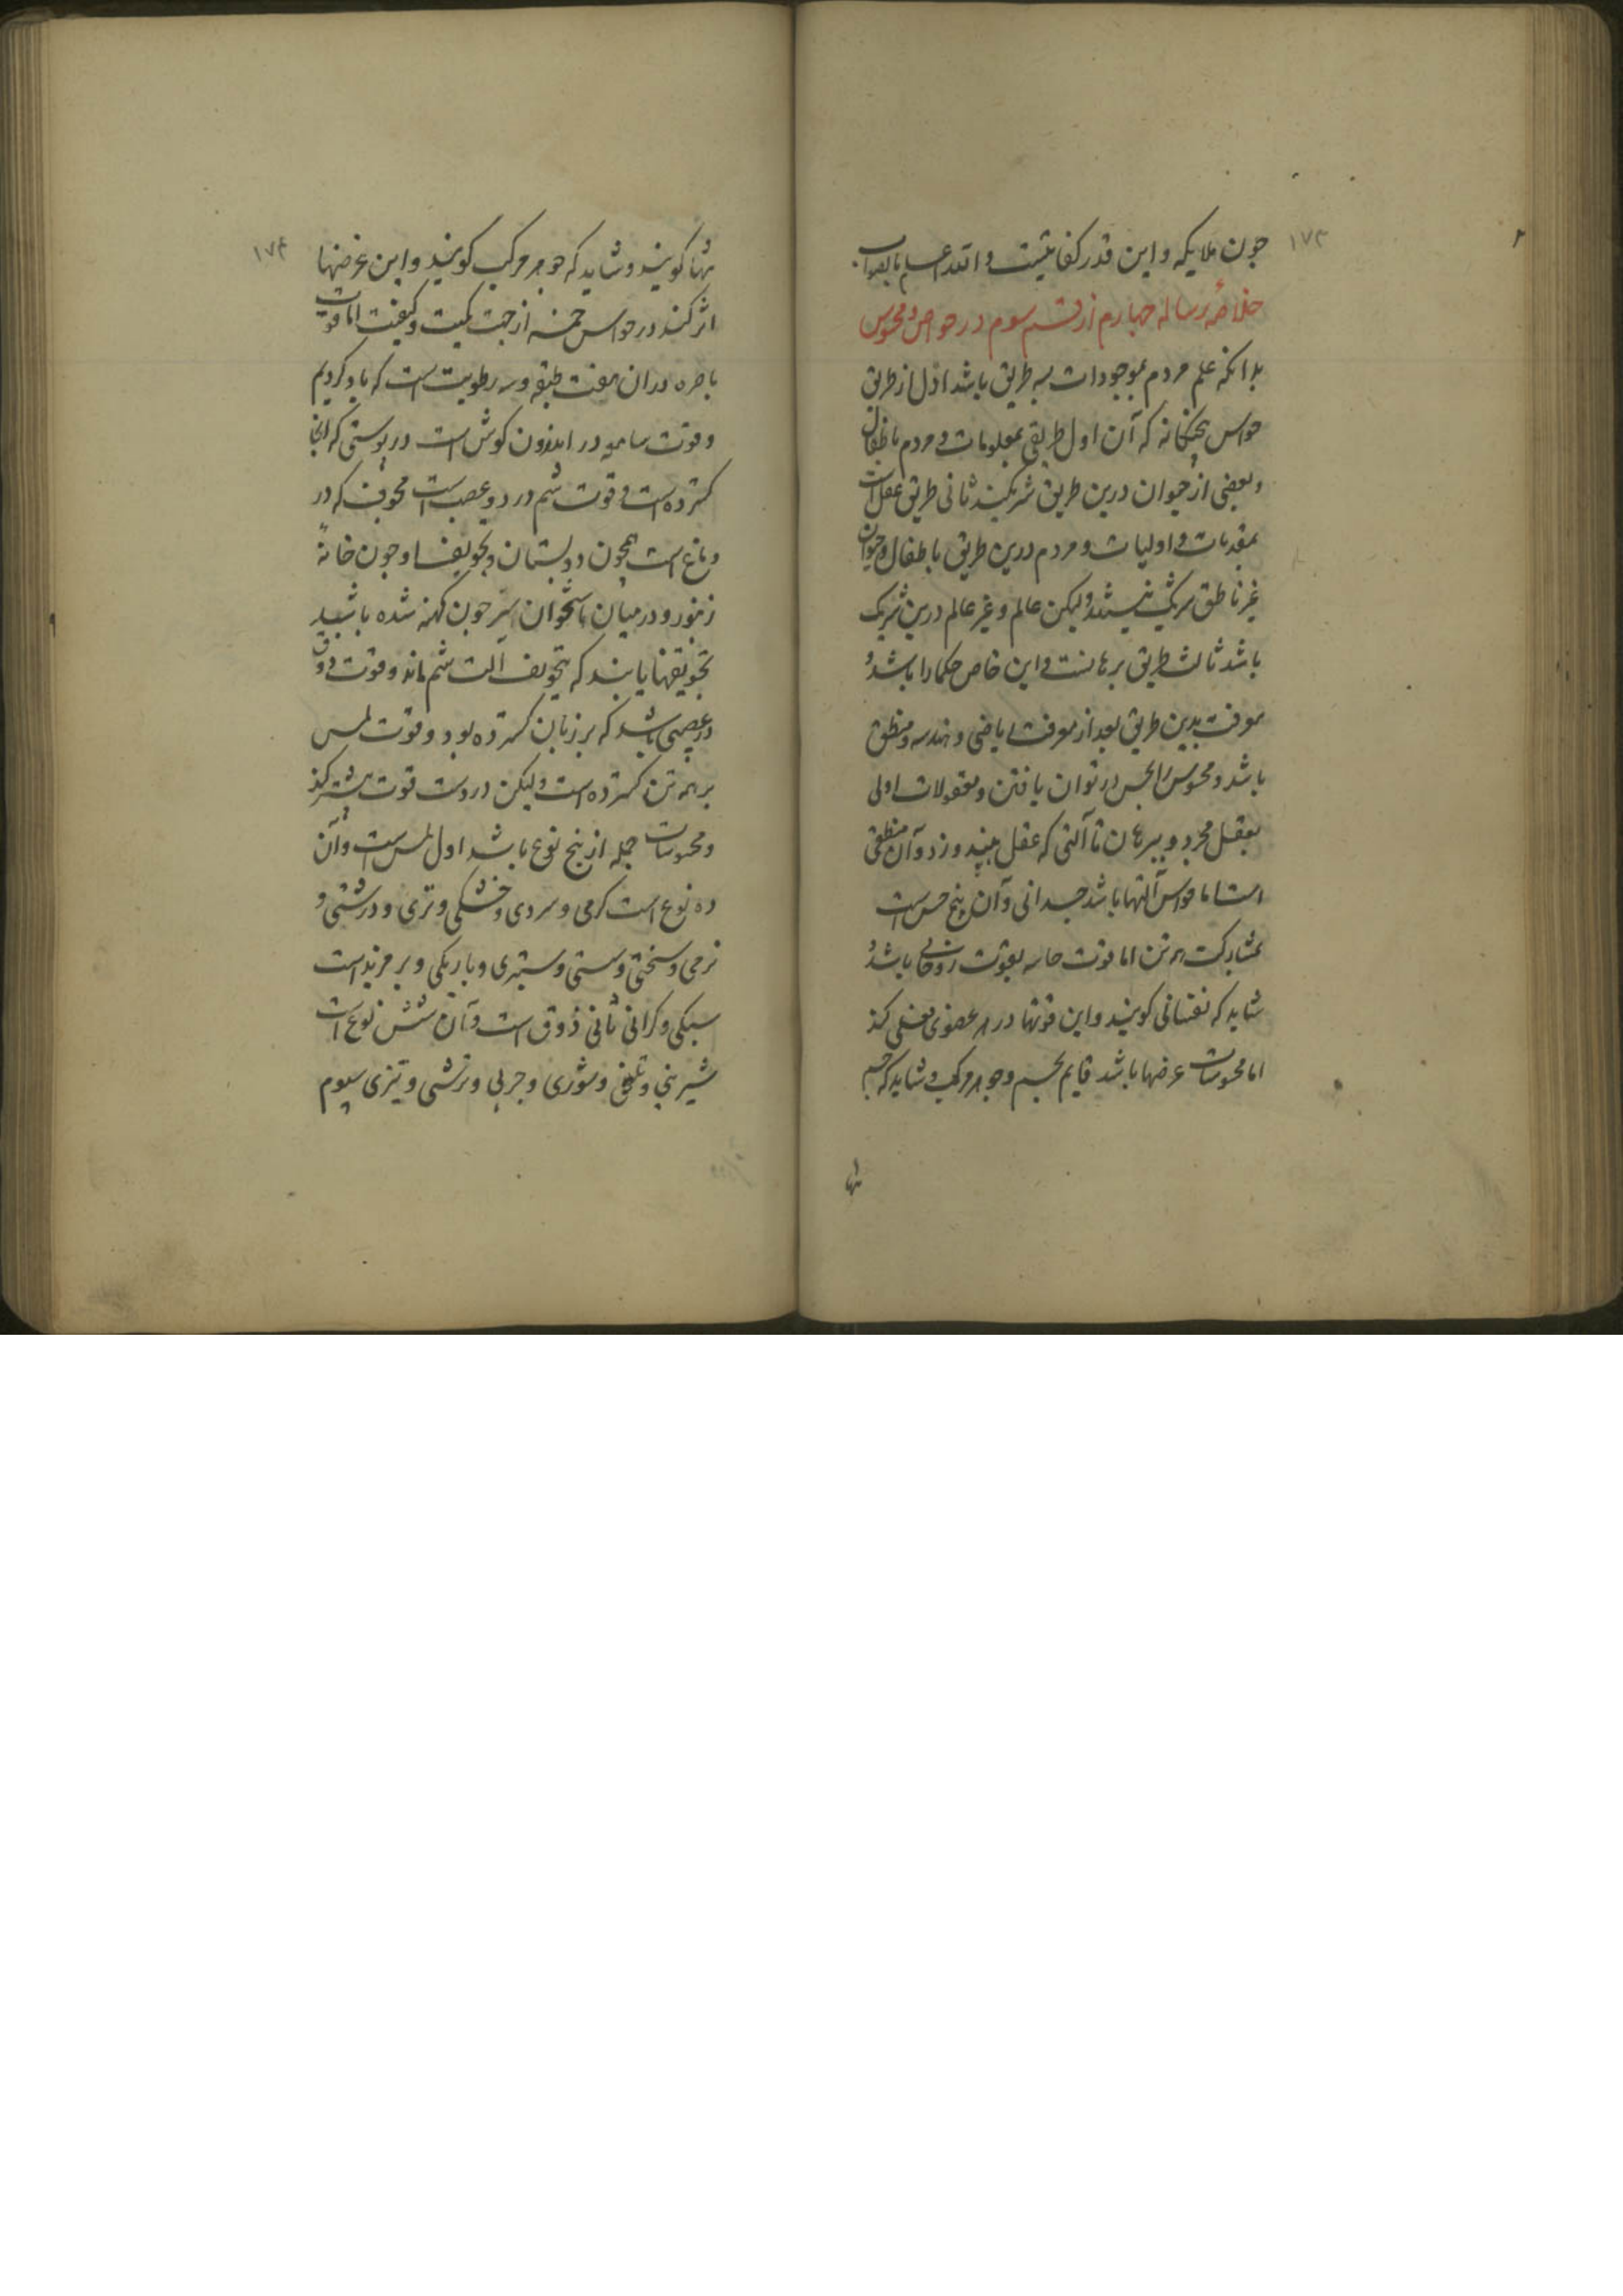 ۱۷۳
جون ملایکه و این قدر کفایتست و الله اعلم بالصواب
خلاصهٔ رساله جهارم از قسم سوم در حواس و محسوس
بدانکه علم مردم بموجودات بسه طریق باشد اول از طریق
حواس پنجکانه که آن اول طریق بمعلوماتست و مردم با طفال
و بعضی از حیوان درین طریق شریکند ثانی طریق عقل است
بمقدمات و اولیات و مردم درین طریق با طفال و حیوان
غیر ناطق شریک نیستند ولیکن عالم و غیر عالم درین شریک
باشد ثالث طریق برهانست و این خاص حکما را باشد و
معرفت بدین طریق بعد از معرفت ریاضی و هندسه و منطق
باشد و محسوس را بحس در توان یافتن و معقولات اولی
بعقل مجرد و ببرهان تا آلتی که عقل بیند و زد و آن منطقی
است اما حواس آلتها باشد جسدانی و آن پنج حس است
بمشارکت هر تن اما قوت حاسه بقوت روحانی باشد و
شاید که نفسانی کویند و این قوتها در هر عضوی فعلی کند
اما محسوسات عرضها باشد قایم بجسم و جوهر مرکب و شاید که جسم
تنها
۱۷۴
تنها کویند و شاید که جوهر مرکب کویند و این عرضها
اثر کند در حواس خمسه از جهت کمیت و کیفیت اما قوت
باصره در ان هفت طبقه و سه رطوبیت است که یاد کردیم
و قوت سامعه در اندرون کوش است در پوستی که انجا
کسترده است و قوت شم در دو عصب است مجوف که در
دماغ است همچون دو پستان و تجویف او چون خانهٔ
زنبور و در میان استخوان سر چون کهنه شده باشد
تجویفها یابند که بتجویف الت شم ماند و قوت ذوق
در عصبی باشد که بر زبان کسترده بود و قوت لمس
بر همه تن کسترده است ولیکن در دست قوت بیشتر کند
و محسوسات جمله از پنج نوع باشد اول لمس است و آن
ده نوع است کرمی و سردی و خشکی و تری و درشتی و
نرمی و سختی و سستی و ستبری و باریکی و برمزید است
سبکی و کرانی ثانی ذوق است و آن شش نوع است
شیرینی و تلخی و شوری و جربی و ترشی و تیزی سیوم